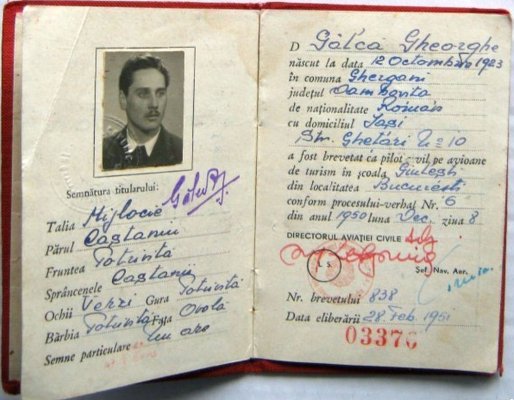 Semnătura titularului:
Talia Mijlocie
Părul Castaniu
Fruntea Potrivita
Sprâncenele Castanii
Ochii Verzi Gura Potrivita
Bărbia Potrivită Fața Ovala
Semne particulare nu are
D Gâlcă Gheorghe
născut la data 12 Octombrie 1923
în comuna Ghergani
județul Dambovita
de naționalitate Român
cu domiciliul Iași
Str. Ghetari No 10
a fost brevetat ca pilot civil pe avioane
de turism în școala Giulești
din localitatea București
conform procesului-verbal Nr. 6
din anul 1950 luna Dec. ziua 8
DIRECTORUL AVIAȚIEI CIVILE
L. S.
Șef. Nav. Aer.
Nr. brevetului 838
Data eliberării 28 Feb. 1951
03376